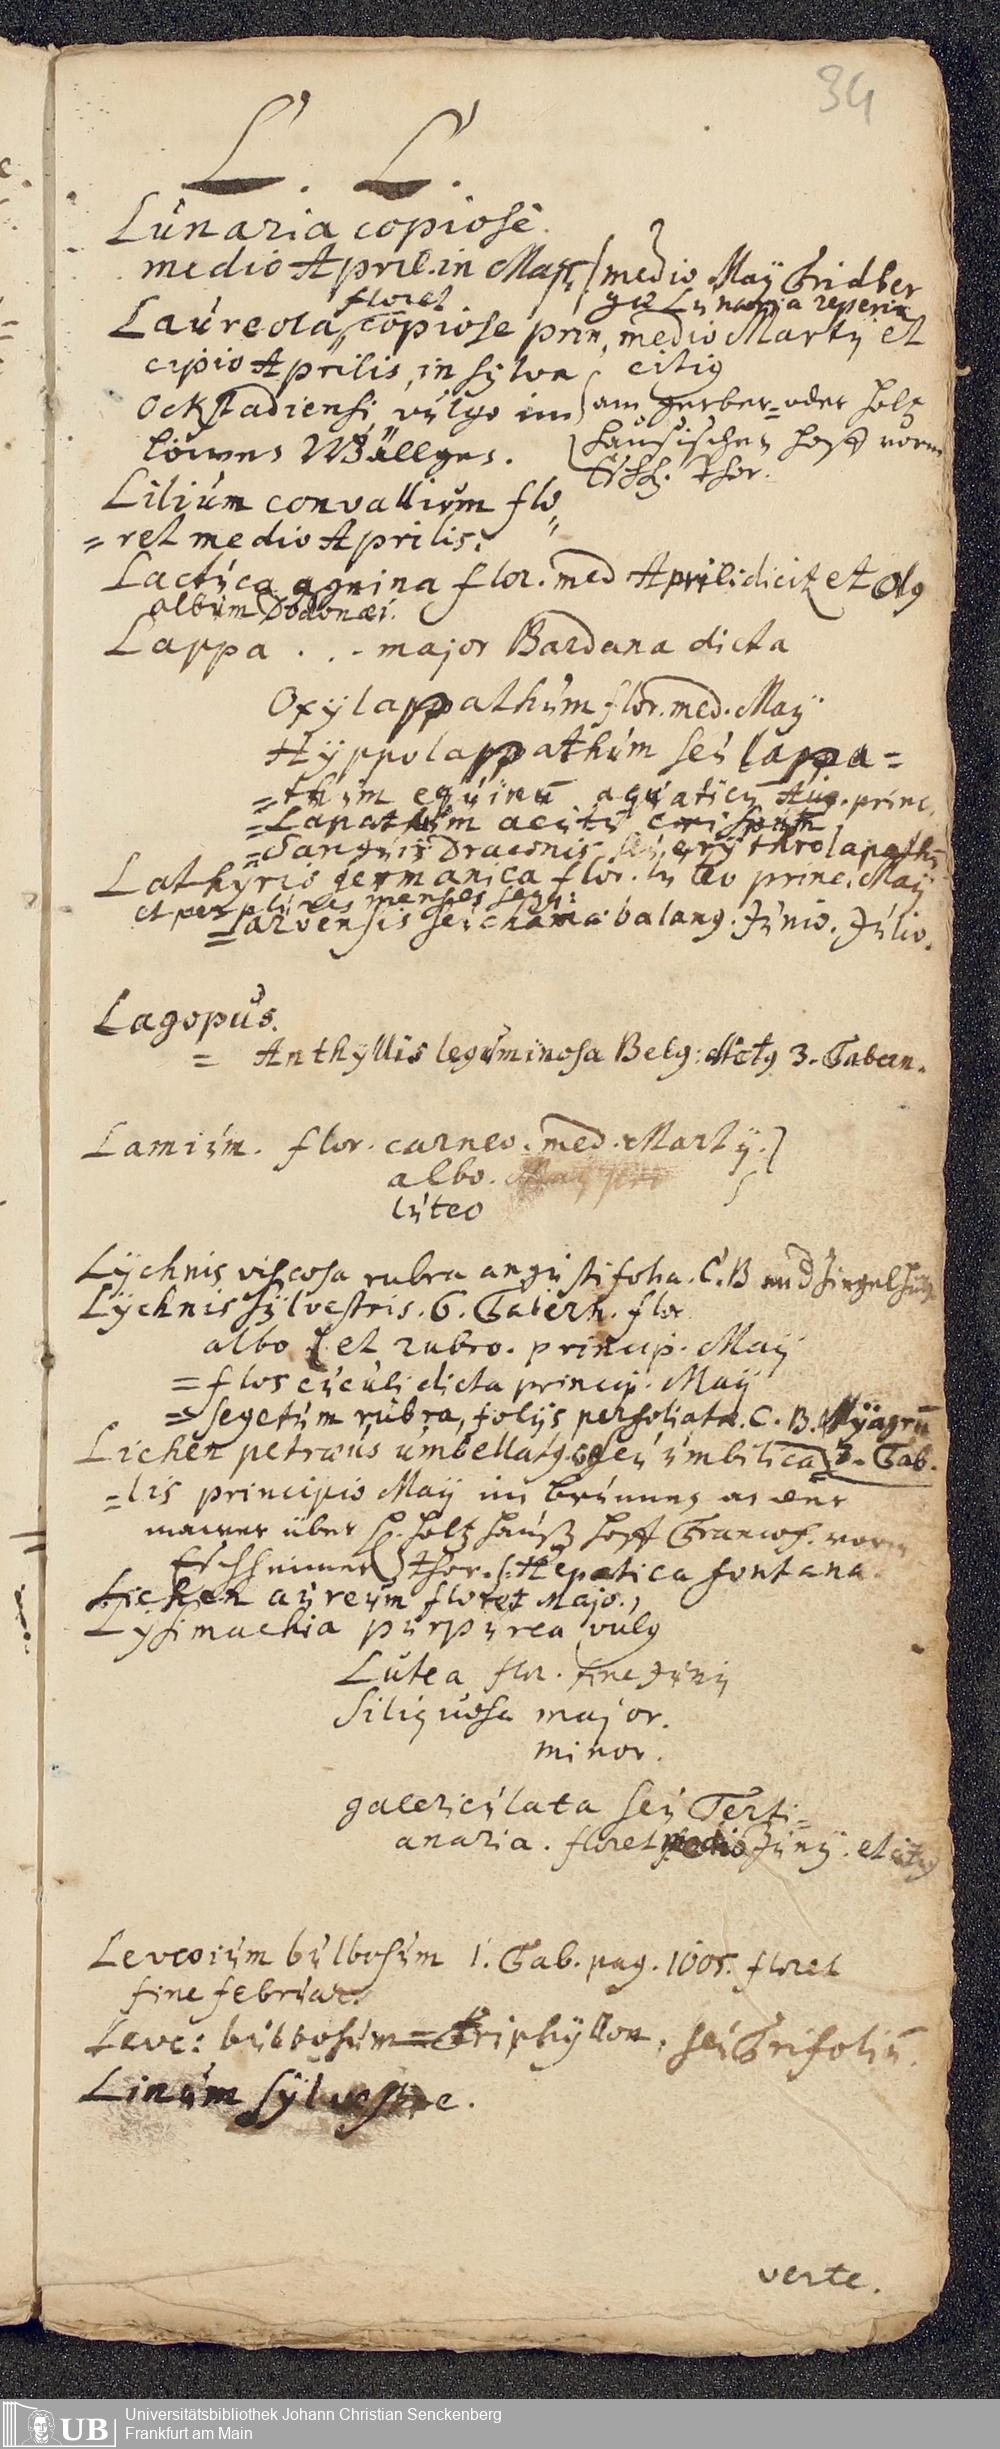 34
L. L.
Lunaria copiose.
medio April. in Maji / medio Maÿ Fridber
gæ Lunaria reperit
floret
Laureola copiose prin, medio Martÿ et
cipio Aprilis, in sylva citiq
Ockstadiensi, vulgo im am gerber= oder holtz
löwen Wällgen. hausischen hoff vorm
Esch. thor.
Lilium convallium flo
= ret medio Aprilis.
Lactuca agnina flor. med Aprili dicit et Olq
album Dodonæi.
Lappa . . - major Bardana dicta
Oxylappathum flor. med. Maÿ
Hÿppolappathum seu lappa=
= thum equinū aquaticū Aug. princ.
= Lapathum acutū crispum
= Sanguis Draconis seu erÿthrolapathū
Lathyris germanica flor. luteo princ. Maÿ
et per plures menses seqq:
= arvensis seu chamæbalang. Junio. Julio.
Lagopus.
= Anthÿllis leguminosa Belg: 3. Tabern.
Lamium. flor. carneo. med. Martÿ.
albo.
luteo
Lÿchnis viscosa rubra angustifolia. C. B
Lÿchnis sÿlvestris. 6. Tabern. flor
albo et rubro. princip. Maÿ
= flos cuculi dicta princip. Maÿ
= segetum rubra, folÿs perfoliata. C. B. Mÿagrū
3. Tab.
Lichen petræus umbellatq seu umbilica
= lis principio Maÿ im brunnen an der
mauer über H. holtzhauß hoff Francof. vorm
Eschheimer thor. /: Hepatica fontana.
Lichen aureum floret Majo.
Lysimachia purpurea vulg
Lutea flor. fine Junÿ
Siliquosa major.
minor.
galericulata seu Terti=
anaria. floret medio Junÿ. et citq
Levcoium bulbosum 1. Tab. pag. 1005. floret
fine februar.
Levc: bulbosum= Triphÿllon, seu Trifoliū.
Linum sÿlvestre.
verte.
UB
Universitätsbibliothek Johann Christian Senckenberg
Frankfurt am Main